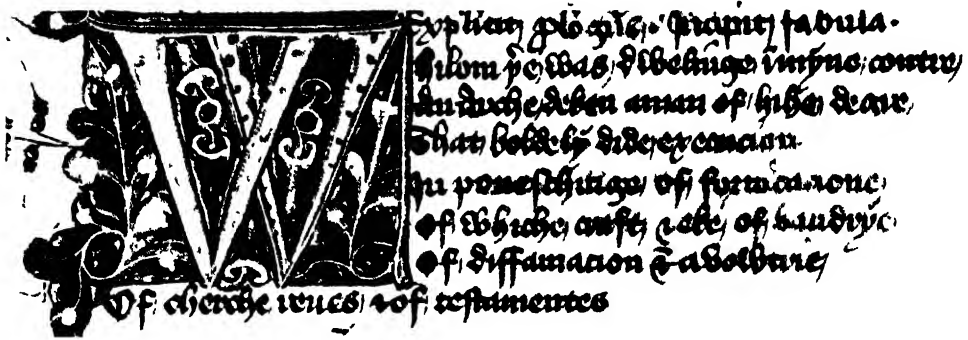 Explicit plogus. Incipit fabula.
Whilom þe was dwellinge in myne contre
An Erche deken a man of hihe degre
That boldely dide execucion
In poneschinge of fornicacione
Of whiche craft & eke of baudrye
Of diffamacion & avoutrie
Of cherche reues & of testamentes